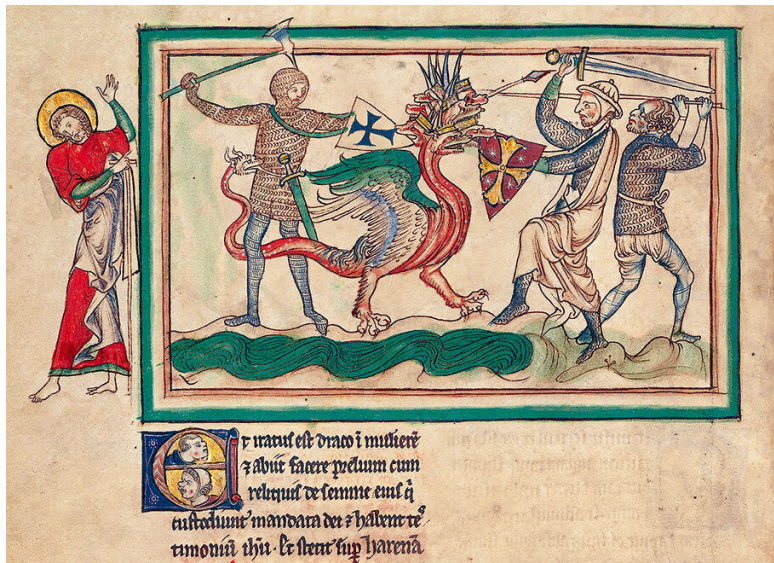 Et iratus est draco ī mulierē
⁊ abiit facere prelium cum
reliquis de semine eius q̄
custodiunt mandata dei ⁊ habent tes
timoniū ihū · Et stetit sup̄ harenā